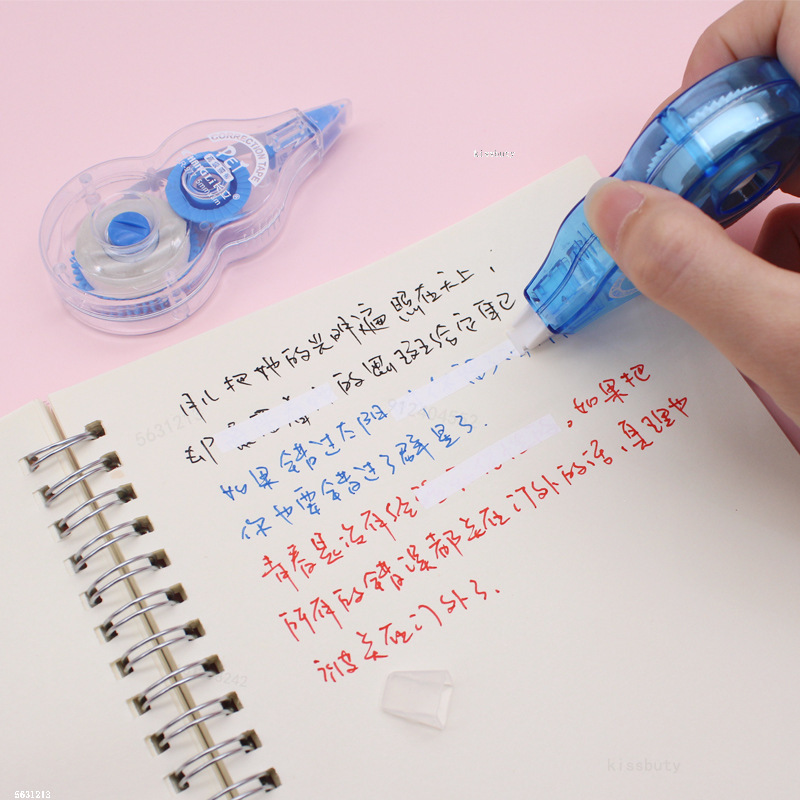 kissbuty
CORRECTION TAPE
PET
月儿把她的光明遍照在天上，
却 的黑斑给它自己
如果错过太阳
你也要错过了群星了.
青春是没有经 ，如果把
所有的错误都关在门外的话，真理也
被关在门外了.
kissbuty
5631213